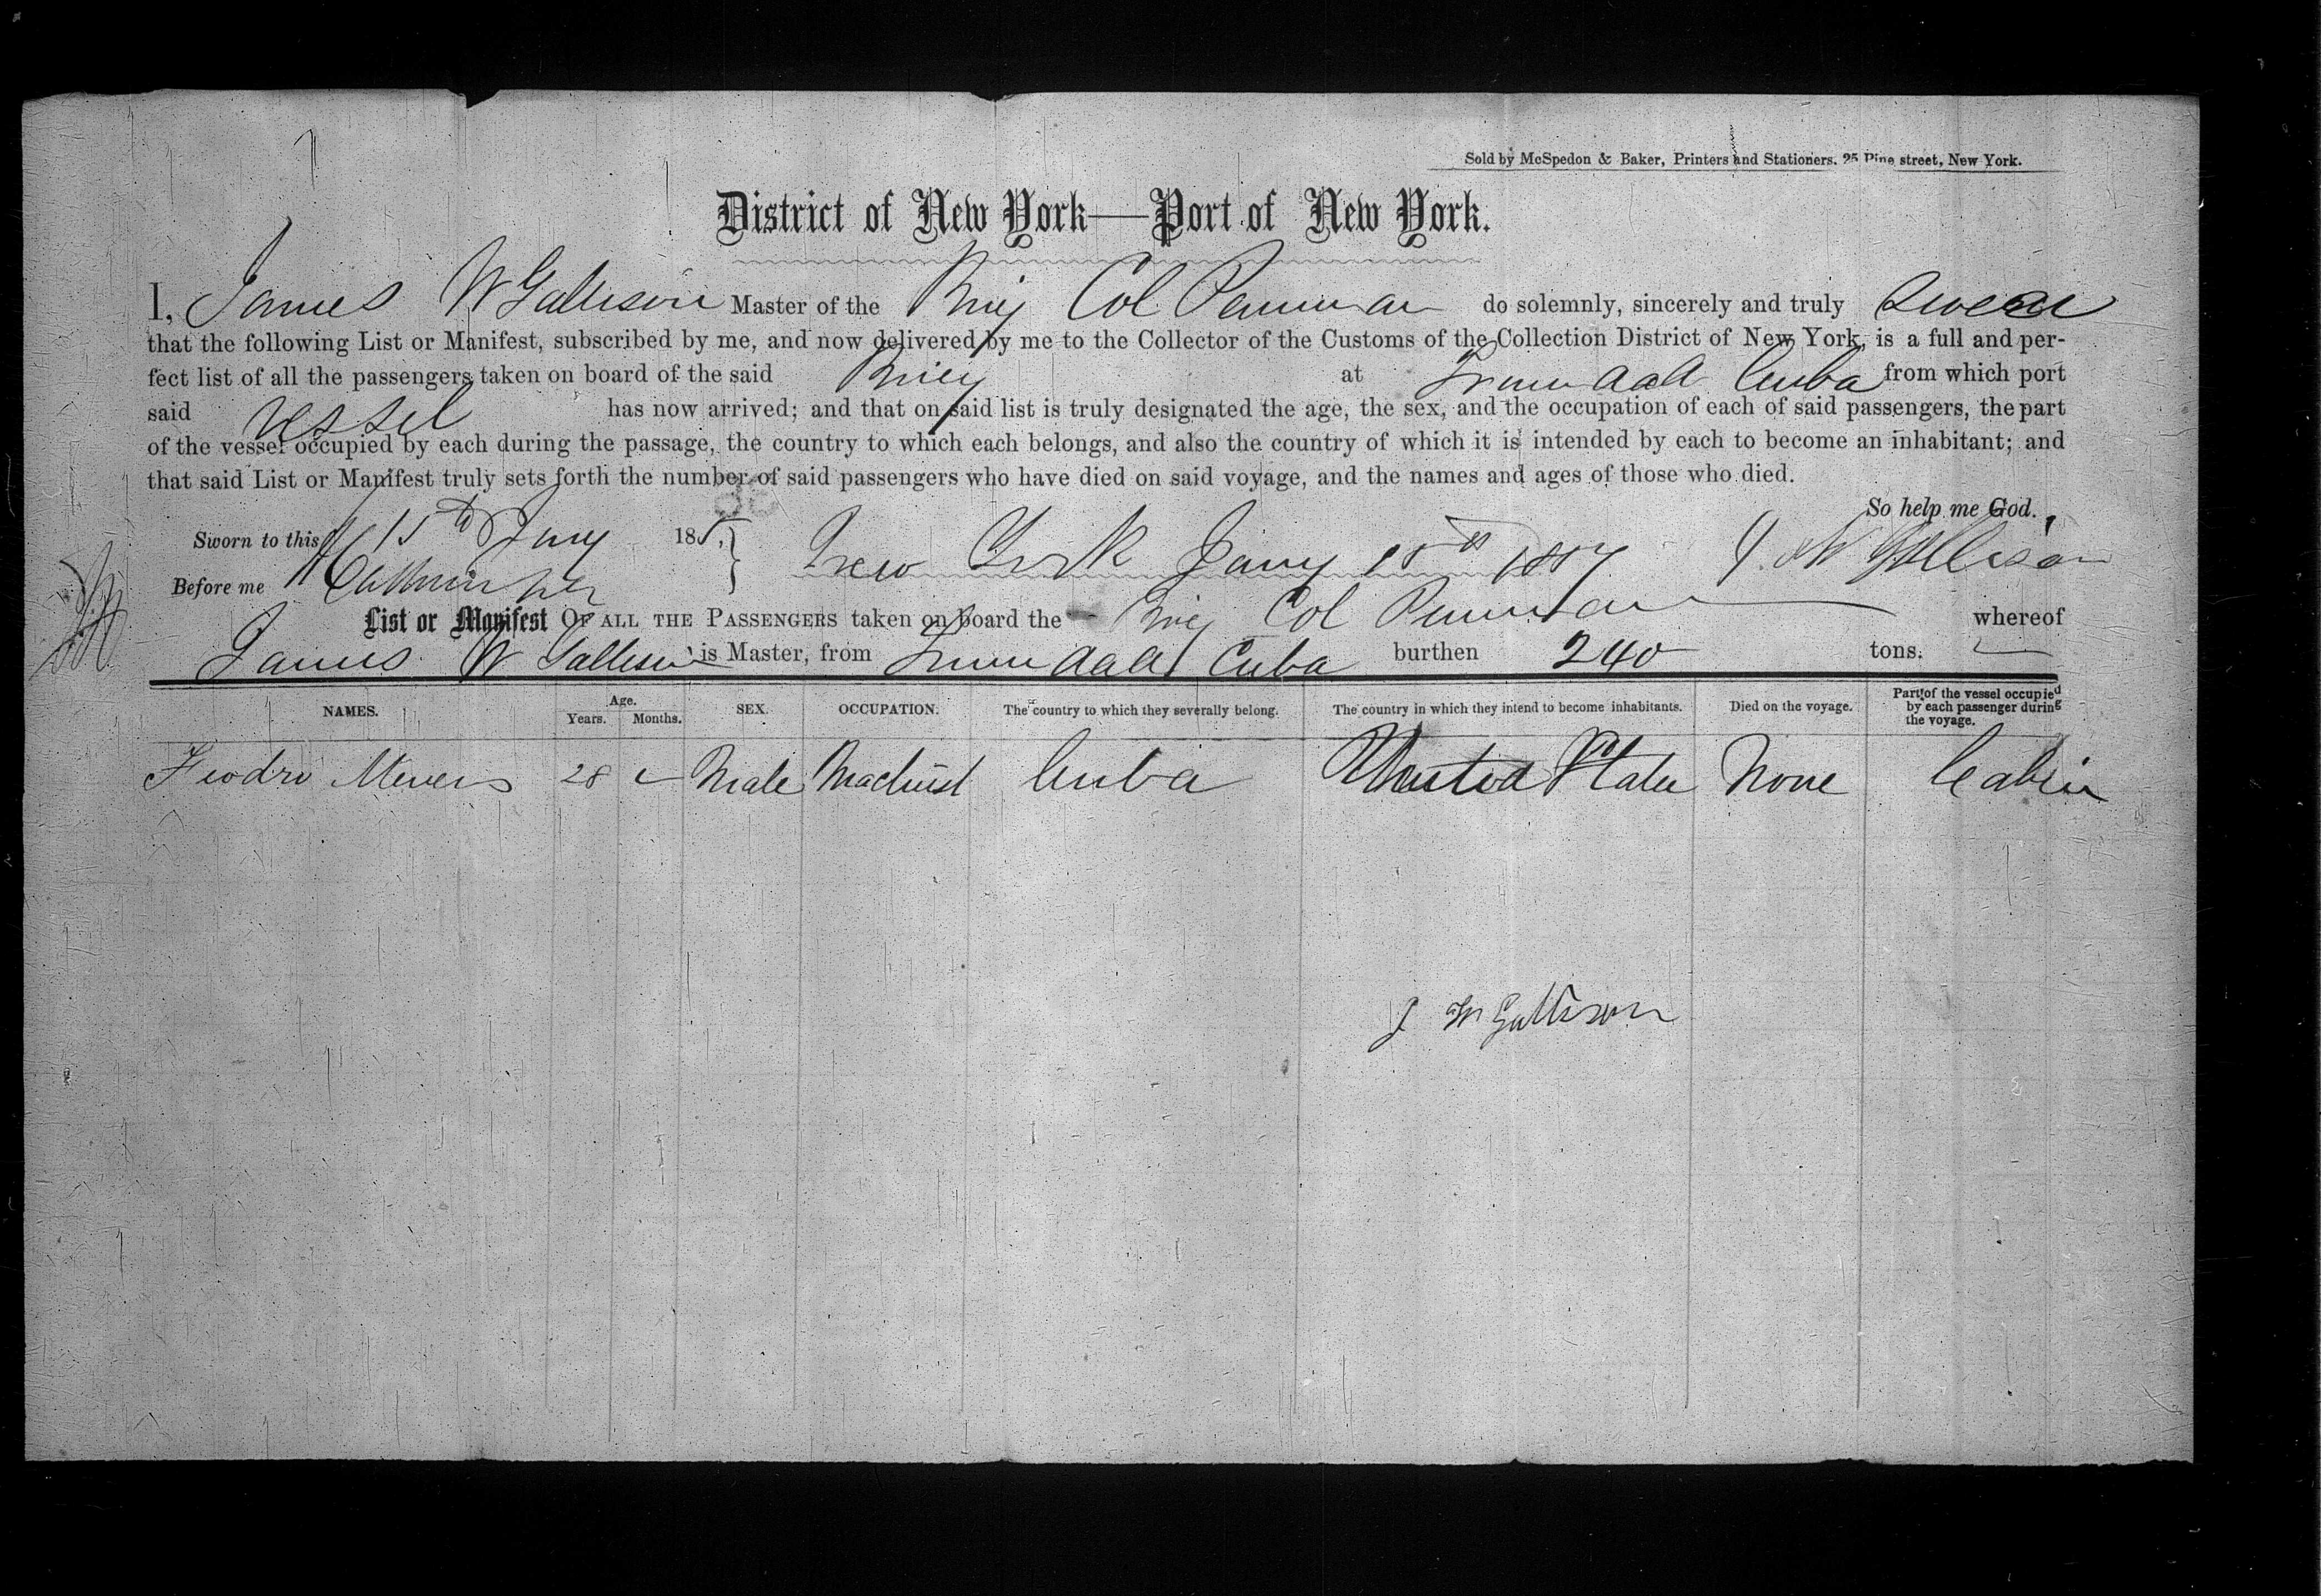 Sold by McSpedon & Baker, Printers and Stationers. 25 Pine street, New York.
District of New York—Port of New York.
I, James W Gallison Master of the Brig Col Penniman do solemnly, sincerely and truly swear
that the following List or Manifest, subscribed by me, and now delivered by me to the Collector of the Customs of the Collection District of New York, is a full and per-
fect list of all the passengers taken on board of the said Brig at Trinidad Cuba from which port
said vessel has now arrived; and that on said list is truly designated the age, the sex, and the occupation of each of said passengers, the part
of the vessel occupied by each during the passage, the country to which each belongs, and also the country of which it is intended by each to become an inhabitant; and
that said List or Manifest truly sets forth the number of said passengers who have died on said voyage, and the names and ages of those who died.
So help me God.
Sworn to this 15th Jany 185 New York Jany 15th 1857 J. W Gallison
Before me
List or Manifest OF ALL THE PASSENGERS taken on board the Brig Col Penniman whereof
James W Gallison is Master, from Trinidad Cuba burthen 240 tons.
NAMES. Age. Years. Months. SEX. OCCUPATION. The country to which they severally belong. The country in which they intend to become inhabitants. Died on the voyage. Part of the vessel occupied by each passenger during the voyage.
28 Male Machinist Cuba United States None Cabin
J W Gallison